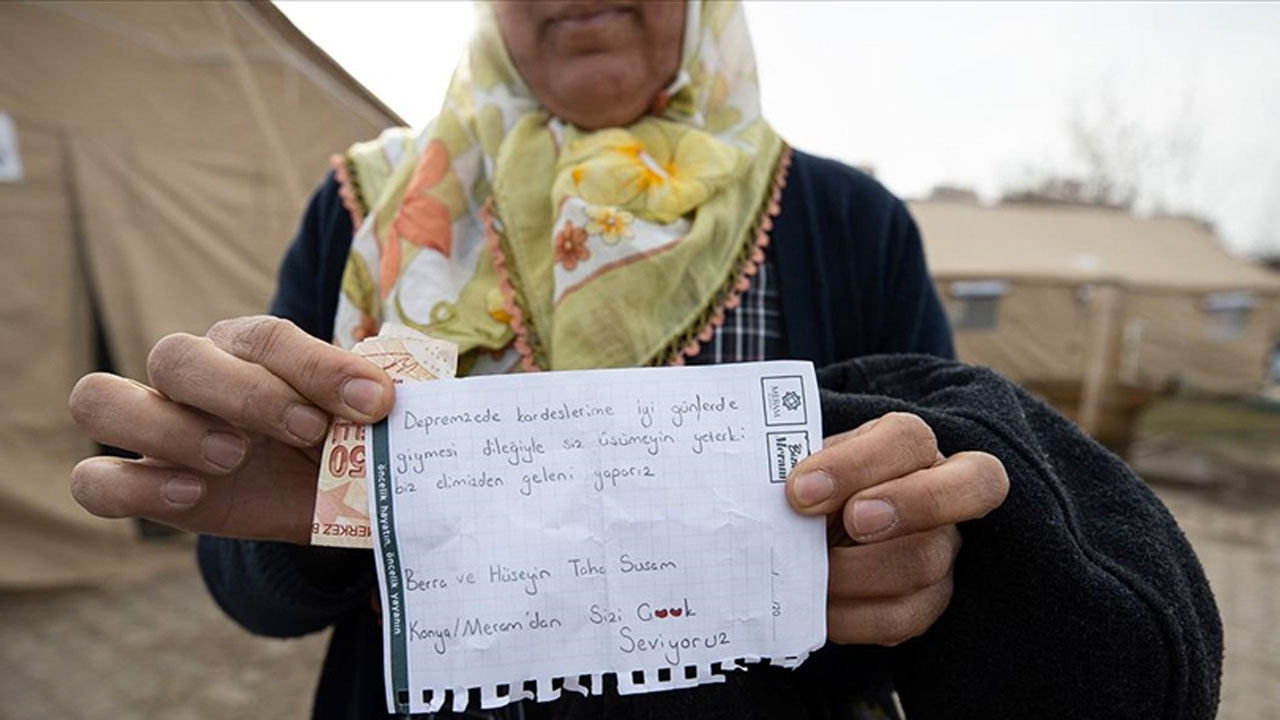 Depremzede kardeşlerime iyi günlerde
giymesi dileğiyle siz üşümeyin yeterki
biz elimizden geleni yaparız
Berra ve Hüseyin Taha Susam
Konya/Meram'dan Sizi Çook
Seviyoruz
öncelik hayatın, öncelik yayanın
MERAM
Meram
/ /20
50
ELLİ
MERKEZ B